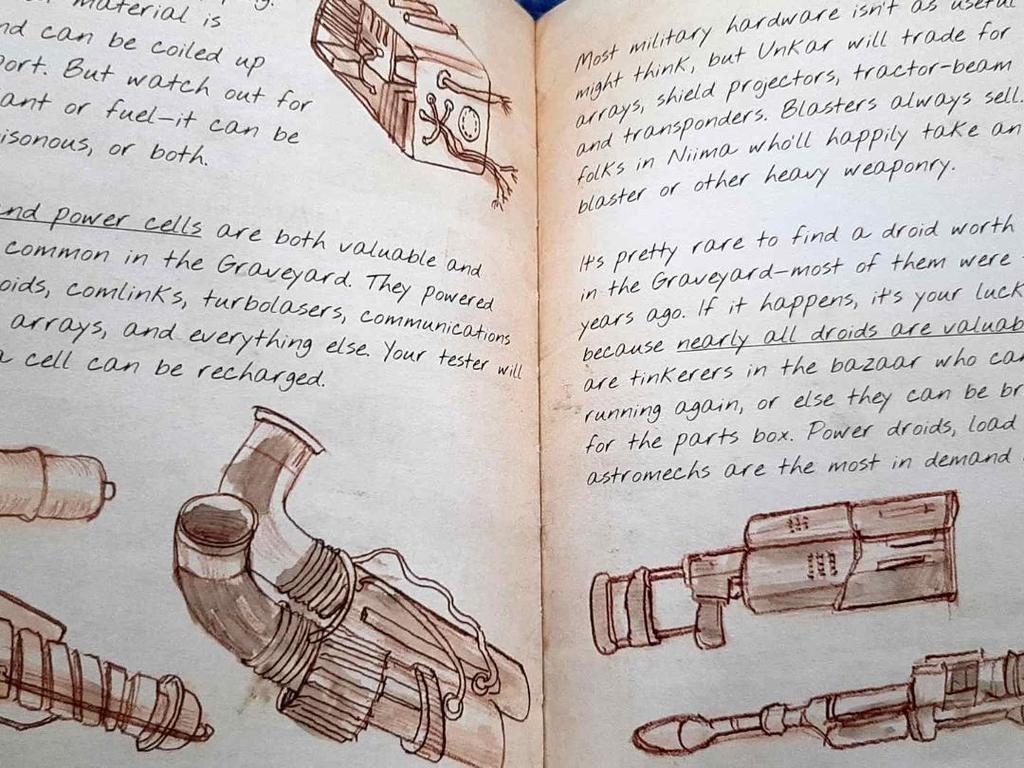 material is
nd can be coiled up
port. But watch out for
ant or fuel—it can be
isonous, or both.
and power cells are both valuable and
common in the Graveyard. They powered
oids, comlinks, turbolasers, communications
arrays, and everything else. Your tester will
a cell can be recharged.
Most military hardware isn't as useful
might think, but Unkar will trade for
arrays, shield projectors, tractor-beam
and transponders. Blasters always sell.
folks in Niima who'll happily take an
blaster or other heavy weaponry.
It's pretty rare to find a droid worth
in the Graveyard—most of them were
years ago. If it happens, it's your luck
because nearly all droids are valuab
are tinkerers in the bazaar who can
running again, or else they can be br
for the parts box. Power droids, load
astromechs are the most in demand